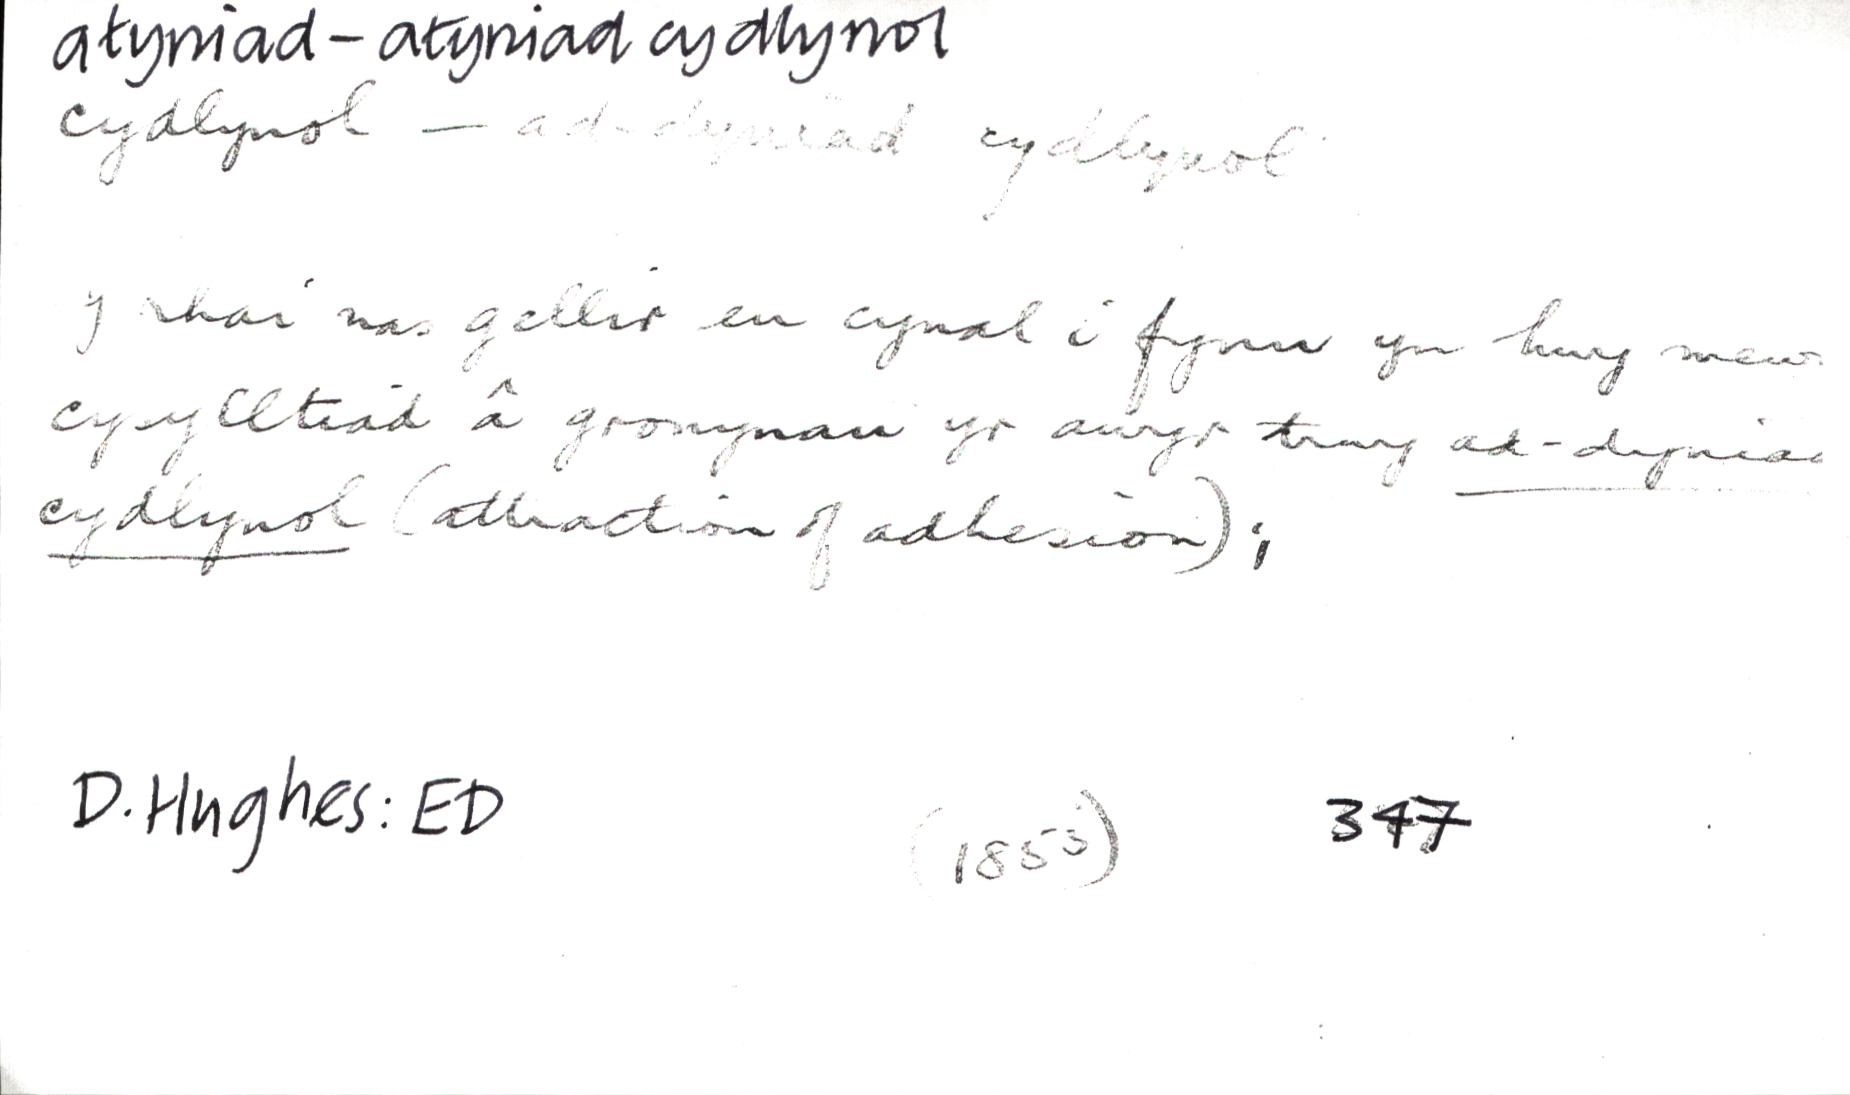 atyniad – atyniad cydlynol
cydlynol — ad-dyniad cydlynol
y rhai nas gellir eu cynal i fynu yn hwy mewn
cysylltiad â gronynau yr awyr trwy ad-dyniad
cydlynol (attraction of adhesion);
D. Hughes: ED
(1853) 347